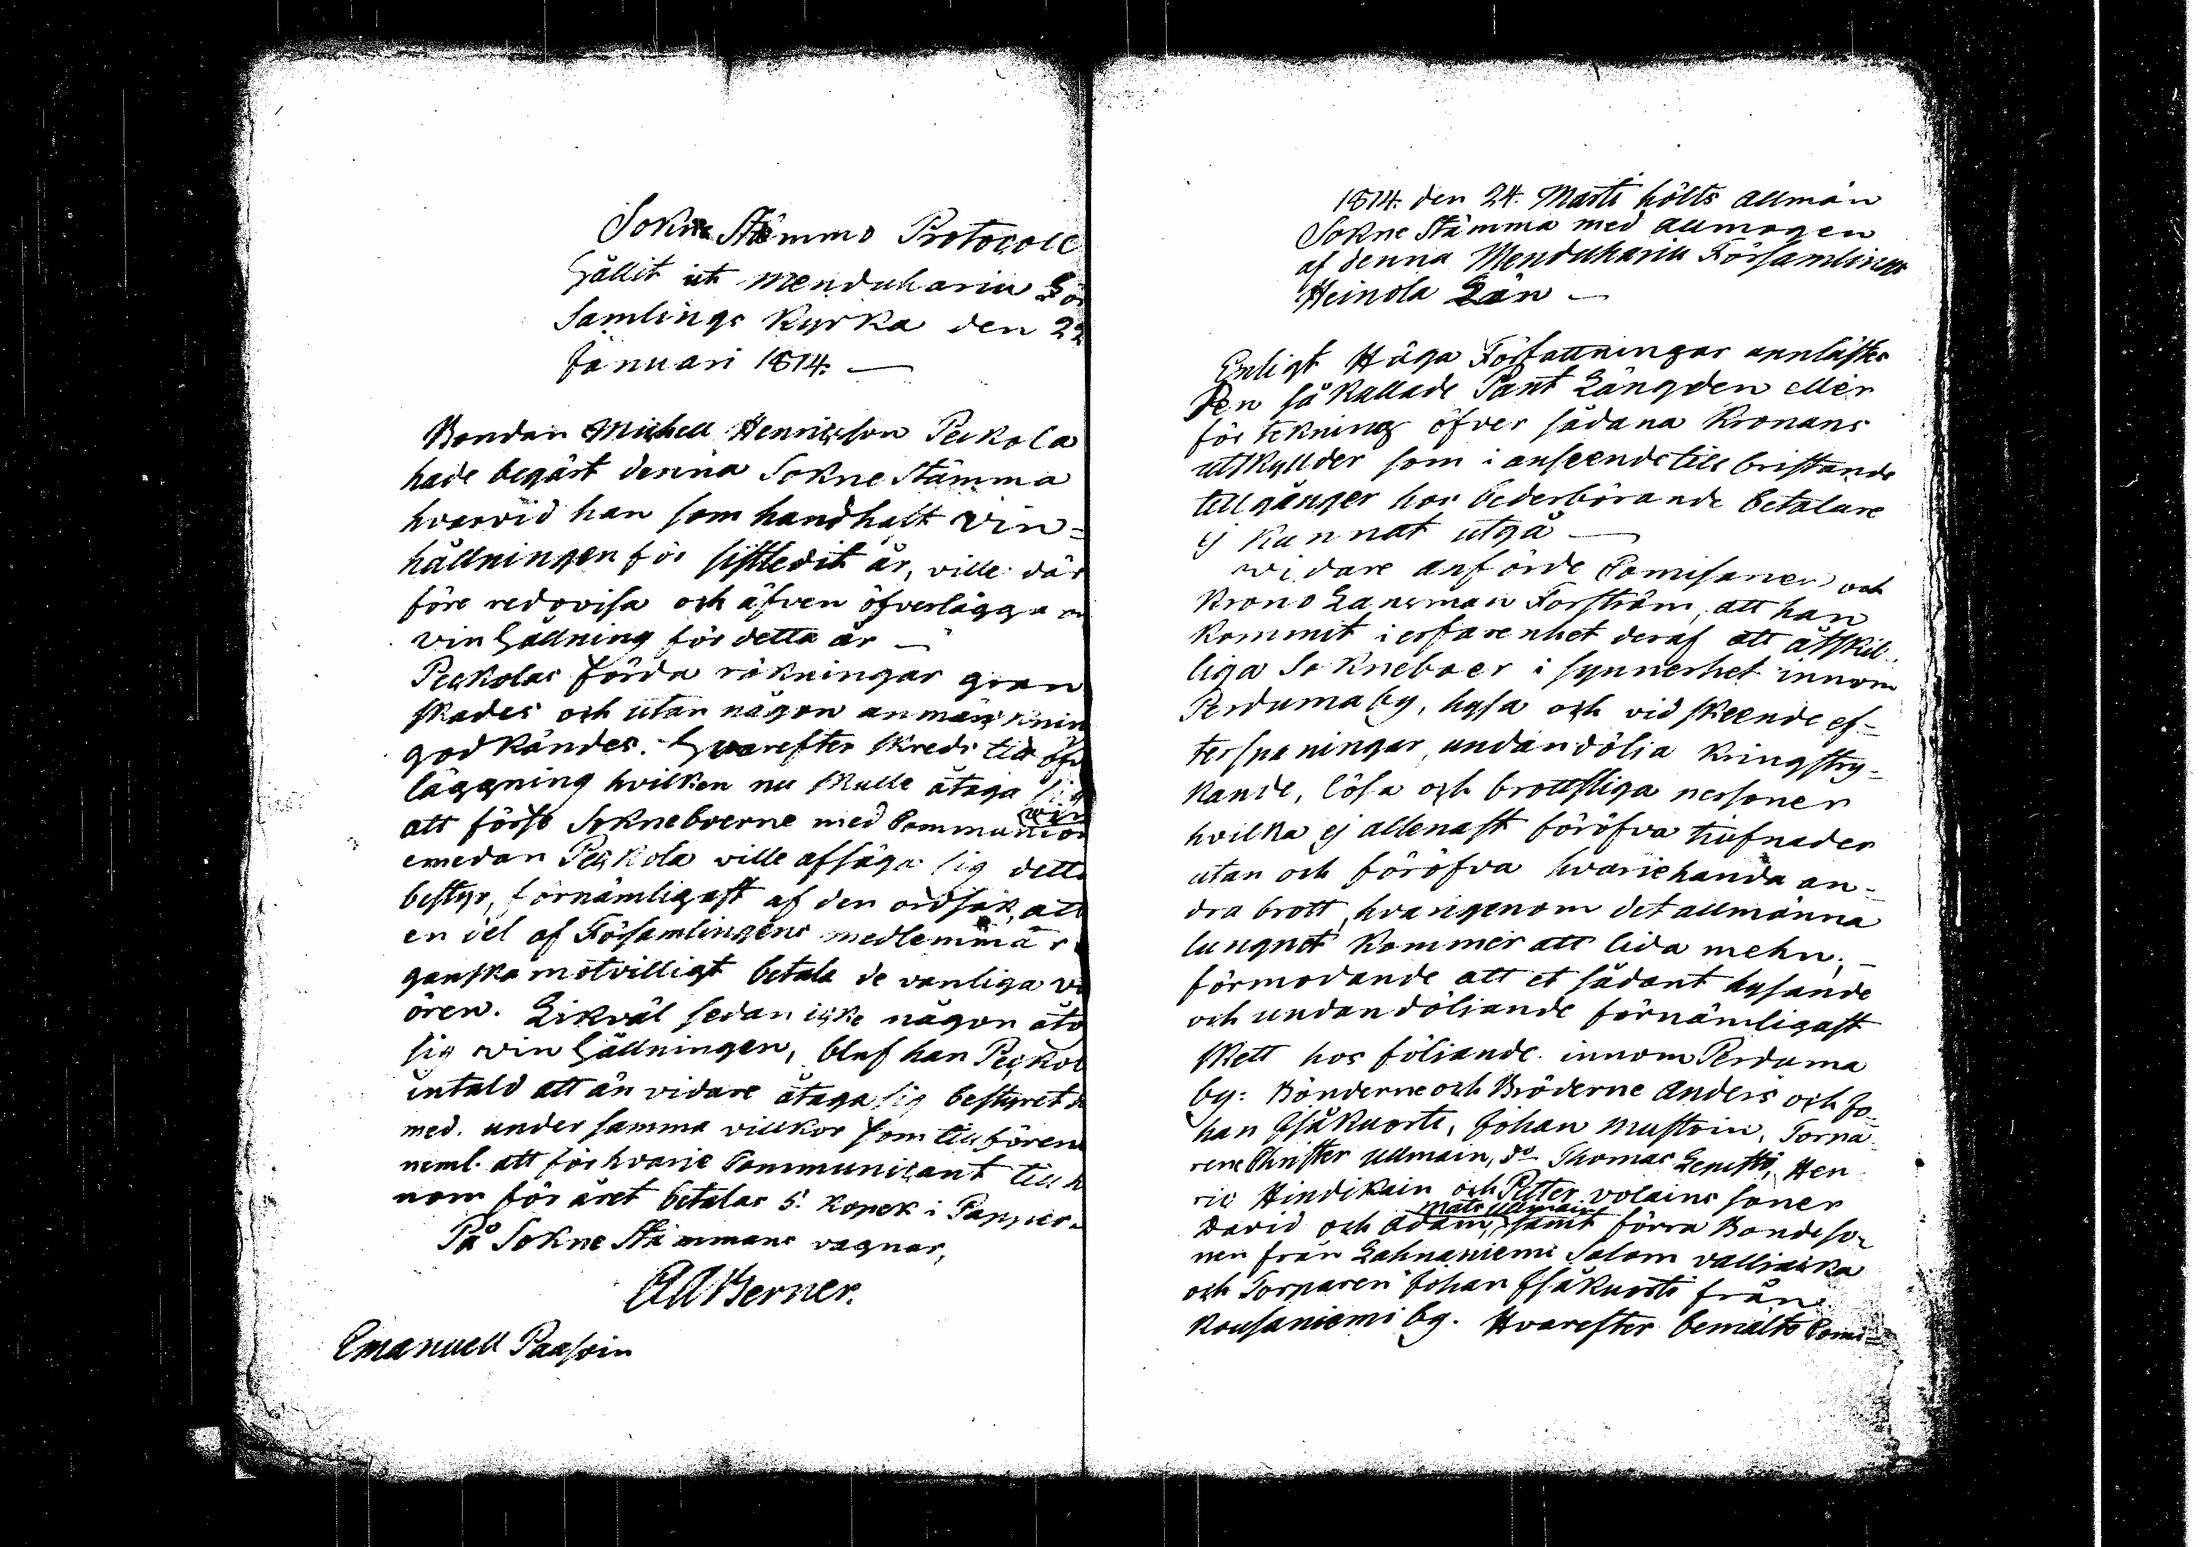 Sokne Stämmo Protocoll
hållit ut Menduharju För
samlings Kyrka den 22
Januari 1814. —
Bonden Michell Henricsson Peckola
hade begärt denna Sokne Stämma
hvarvid han som handhaft vin=
hållningen för sistledit år, ville där
före redovisa och äfven öfverlägga
vinhållning för detta år —
Peckolas förda räkningar gran
skades och utan någon anmärknin
godkändes. Hvarefter skreds till öfv
läggning hvilken nu skulle åtaga sig
att förse Sokneboerne med Communion
vin
emedan Peckola ville afsäga sig detta
bestyr, förnämligast af den ordsak, att
en del af Församlingens medlemmar
ganska motvilligt betala de vanliga
ören. Likväl sedan icke någon åto
sig vinhållningen, blef han Peckol
intald att än vidare åtaga sig bestyret
med. under samma villkor som tillförene
neml. att för hvarje Communicant
nom för året betalas 5. Kopek i Papper
På Sokne Stämmans vägnar,
Ad Berner.
Emanuell Paasoin
1814. den 24. Marti hölts allmän
Sokne Stämma med allmogen
af denna Menduharju Församlings
Heinola Län —
Enligt Höga Författningar upplästes
Den så kallade Pant Längden eller
förtekning öfver sådana Kronans
utskyllder som i anseende till bristande
tillgånger hos vederbörande betalare
ej kunnat utgå —
vidare anförde Comisarien och
Krono Länsman Forström, att han
kommit i erfarenhet deraf att åtskil=
liga Sokneboer i synnerhet innom
Perduma by, hysa och vid skeende ef=
terspaningar, undandölja kringstry=
kande, lösa och brottsliga personer
hvilka ej allenast föröfva tiufnader
utan och föröfva hvariehanda an=
dra brott, hvarigenom det allmänna
lungnet kommer att lida mehn; —
förmodande att et sådant hysande
och undandöljande förnämligast
skett hos följande innom Perduma
by: Bönderne och Bröderne Anders och Jo=
han Jsäkuorti, Johan Mustoin, Torpa
rene Christer Ullmain, do Thomas Lemetti, Hen
ric Hindikain och Petter volains söner
Mats Ullmain
David och Adam, samt förra Bondeso=
nen från Lahnaniemi Salom valliacka
och Torparen Johan Jsäkuorti från
Kousaniemi by. Hvarefter bemälte Comi=